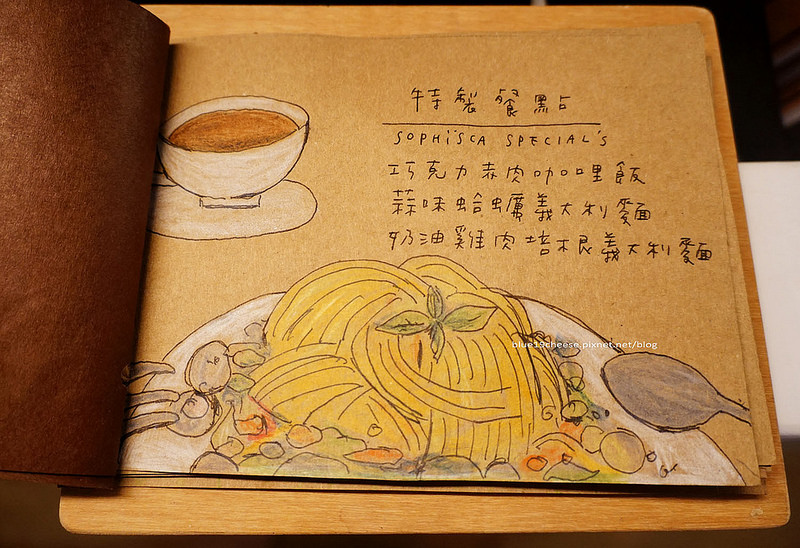 特製餐點
SOPHiSCA SPECIAL'S
巧克力赤肉咖哩飯
蒜味蛤蠣義大利麵
奶油雞肉培根義大利麵
blue19cheese.pixnet.net/blog